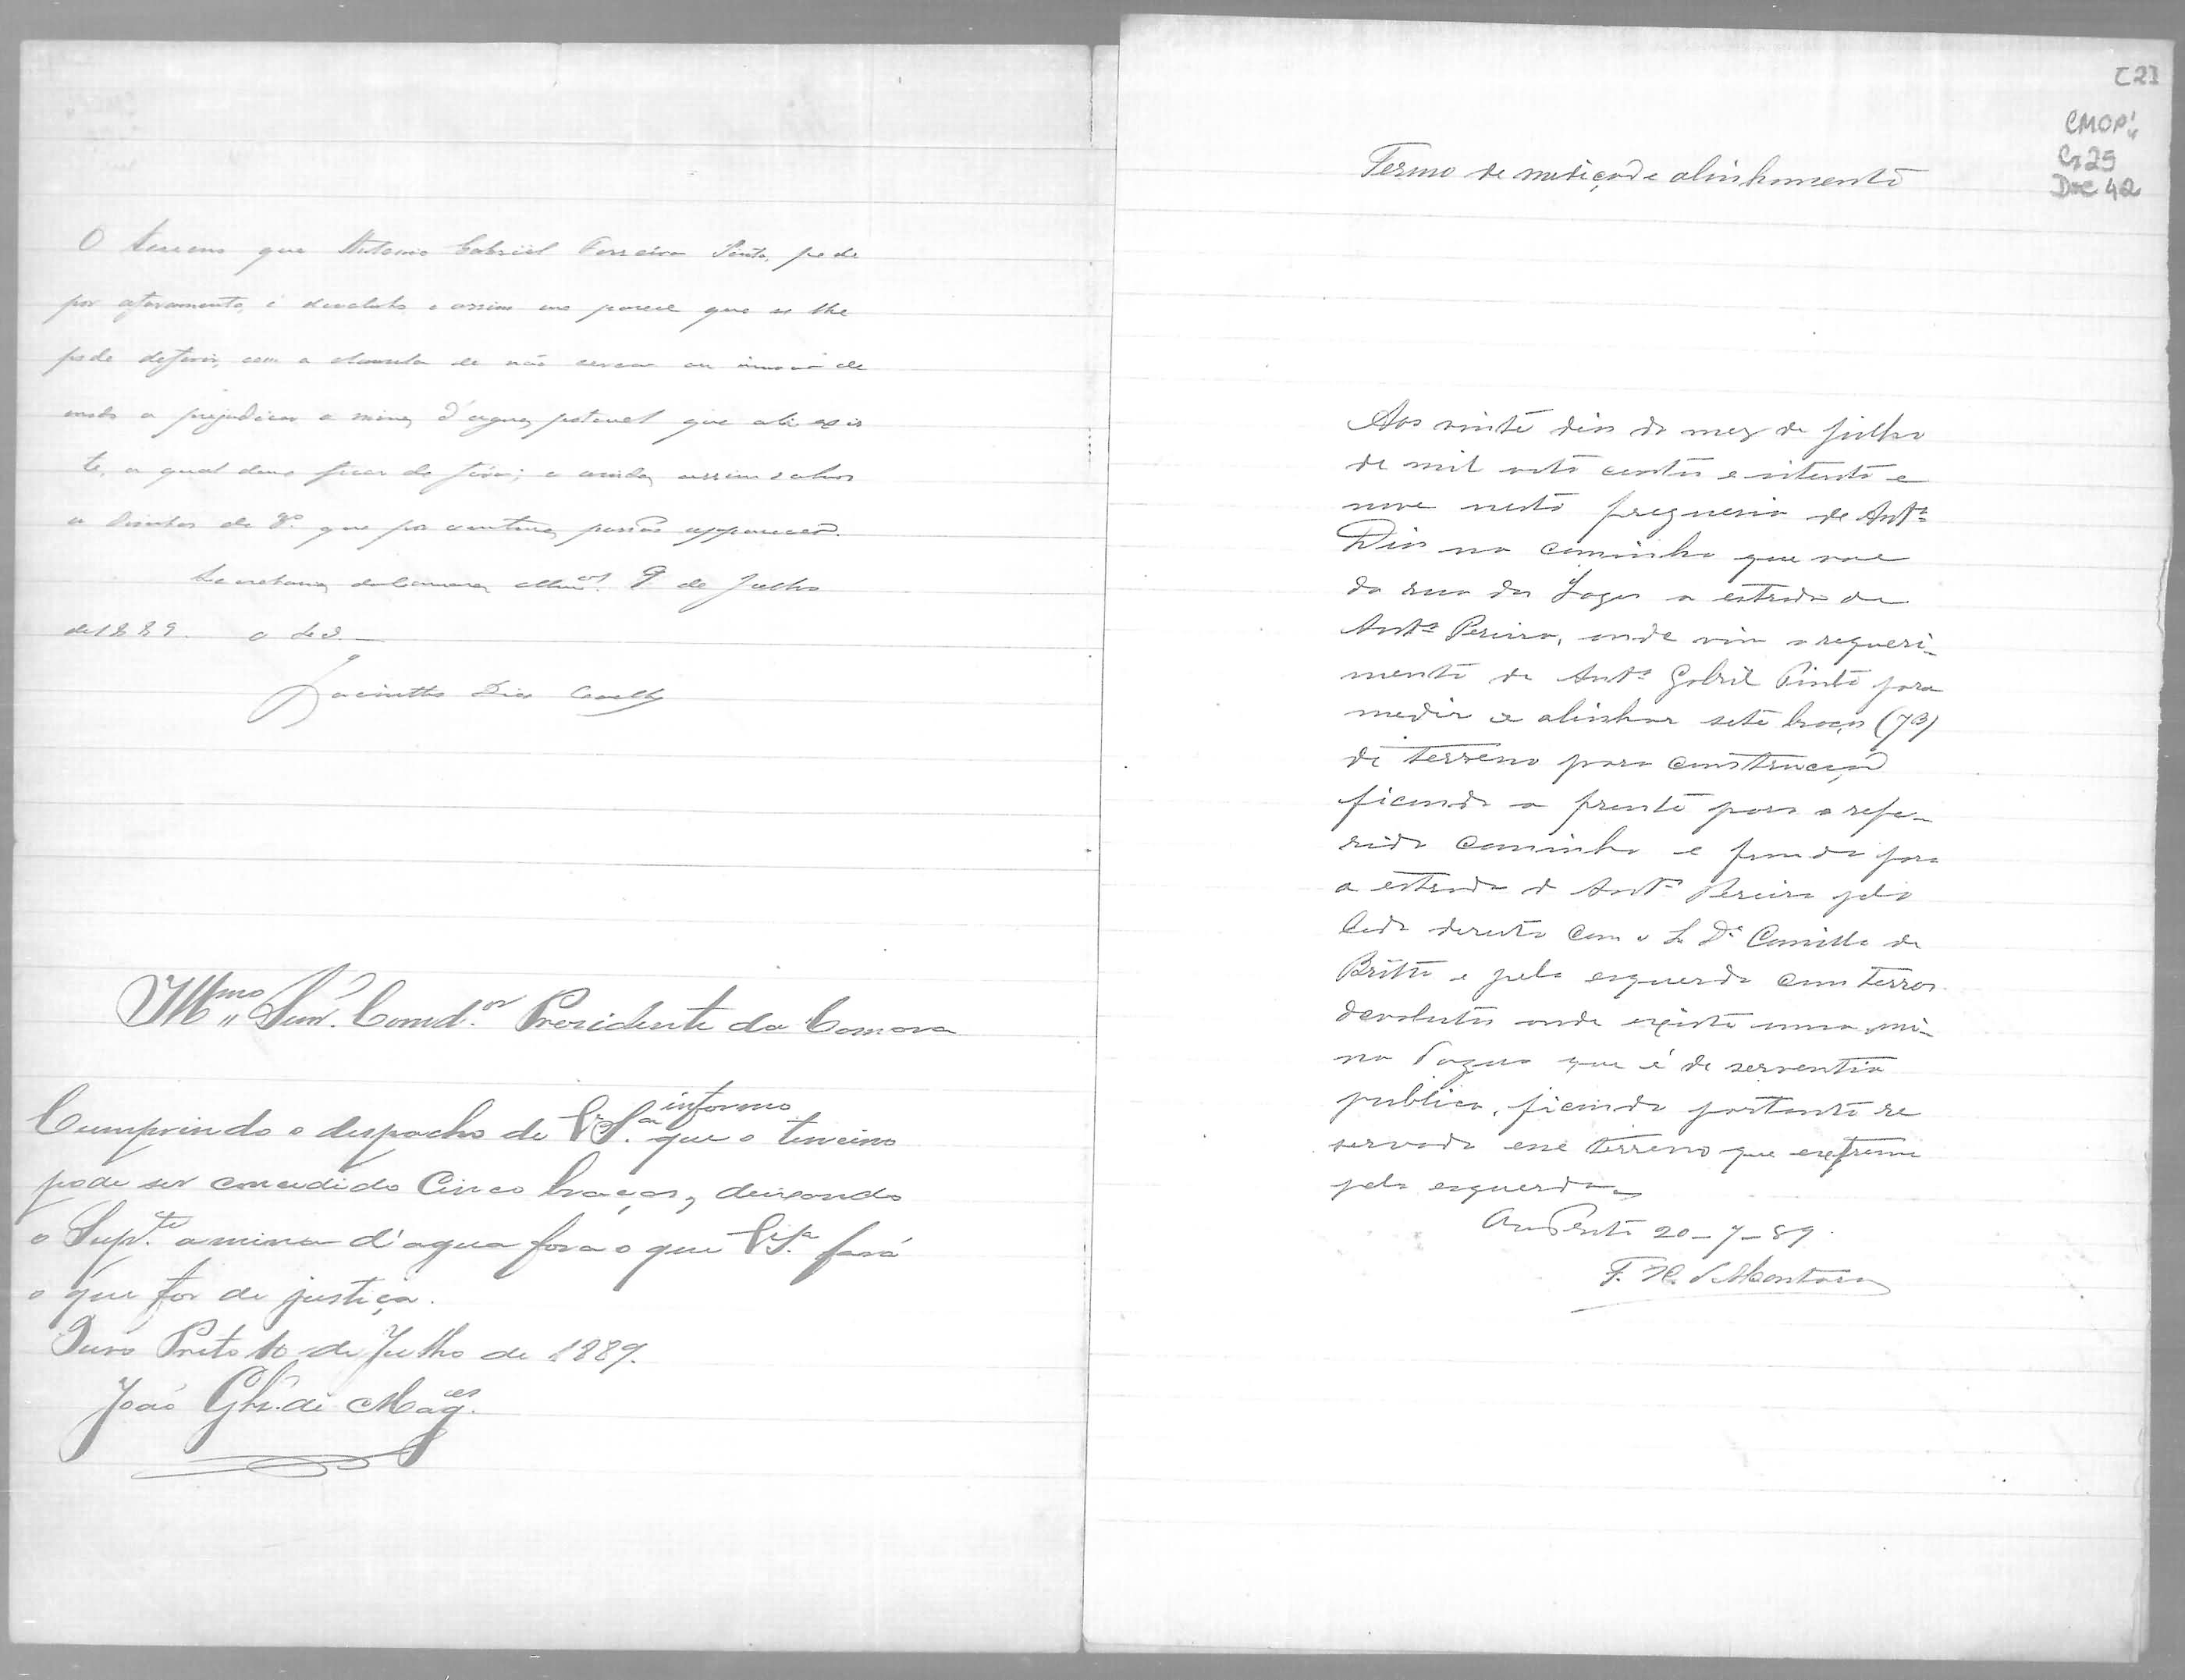 O terreno que Antonio Gabriel Ferreira Pinto, pede
por aforamento, é devoluto e assim me parece que se lhe
pode deferir, com a clausula de não cercar ou de
modo a prejudicar a mina d'agua potavel que ali exis
te, a qual deve ficar de fóra; e ainda assim salvo
o Direitos de 3º que por ventura possão apparecer.
Secretaria da Camara Mun.al 9 de Julho
de 1889. O Secr.
Jacintho Dias Coelho
Illmo Snr. Comd.or Presidente da Camara
Cumprindo o despacho de V.S.a informo que o terreino
pode ser concedido Cinco braças, deixando
o Sup.te a mina d'agua fora o que V.S.a fará
o que for de justiça.
Ouro Preto 10 de Julho de 1889.
João Glz. de Mag.es
[2]
CMOP
Cx 25
Doc 42
Termo de medição de alinhamento
Aos vinte dias do mez de julho
de mil oito centos e oitenta e
nove nesta freguesia de Antº
Dias no caminho que vae
da rua das Lages a estrada de
Antº Pereira, onde vim a requeri-
mento de Antº Gabriel Pinto para
medir e alinhar sete braças (7B)
de terreno para construcção
ficando a frente para o refe-
rido caminho e fundo para
a estrada d Antº Pereira pelo
lado direito com o Sr Dr Camillo de
Britto e pela esquerda com terras
devolutas onde existe uma mi-
na d'agua que é de serventia
publica, ficando portanto re
servado esse terreno que extrema
pela esquerda
Ouro Preto 20-7-89.
F. H.